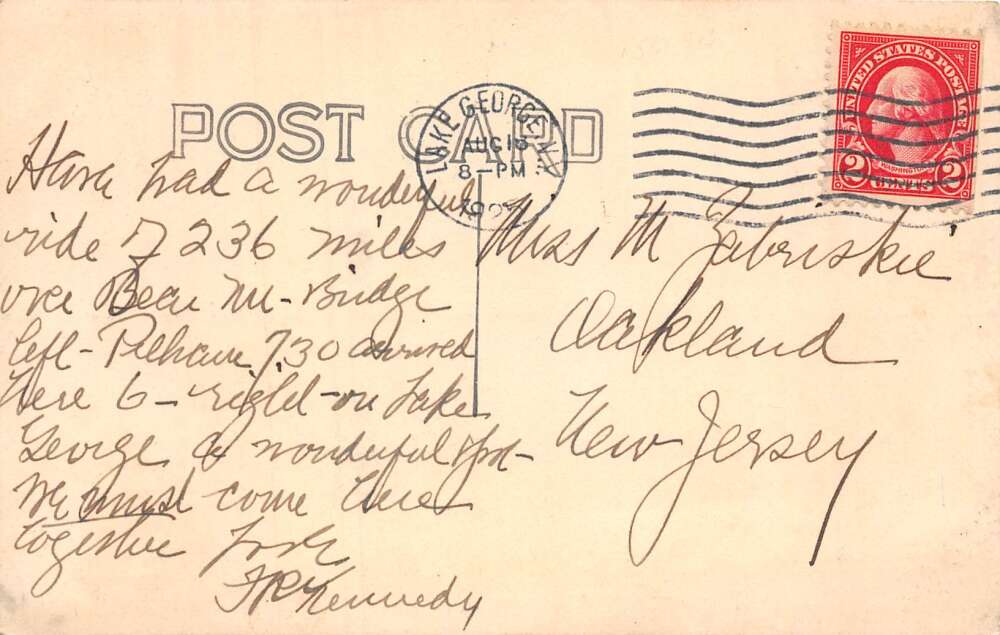 POST CARD
LAKE GEORGE, N.Y.
AUG 15
8-PM
UNITED STATES POSTAGE
WASHINGTON
2 CENTS 2
Have had a wonderful
ride of 236 miles
over Bear Mt-Bridge
left-Pelham 7.30 arrived
here 6-right-on Lake
George a wonderful spot-
We must come here
together
Kennedy
Miss M Zabriskie
Oakland
New Jersey